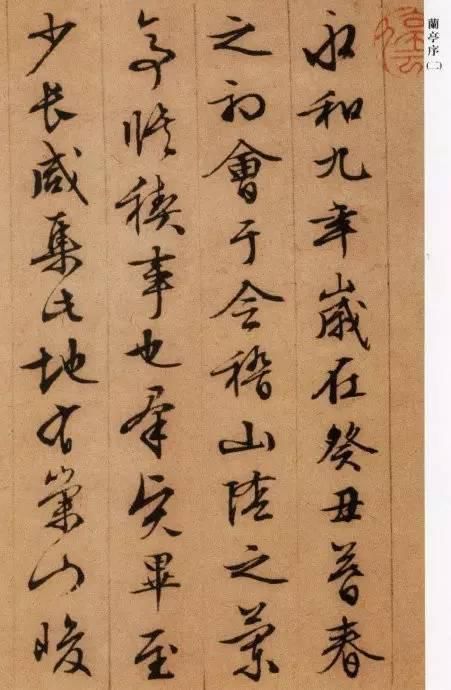 蘭亭序(二)
永和九年歲在癸丑暮春
之初會于会稽山陰之蘭
亭脩稧事也群賢畢至
少長咸集此地有崇山峻